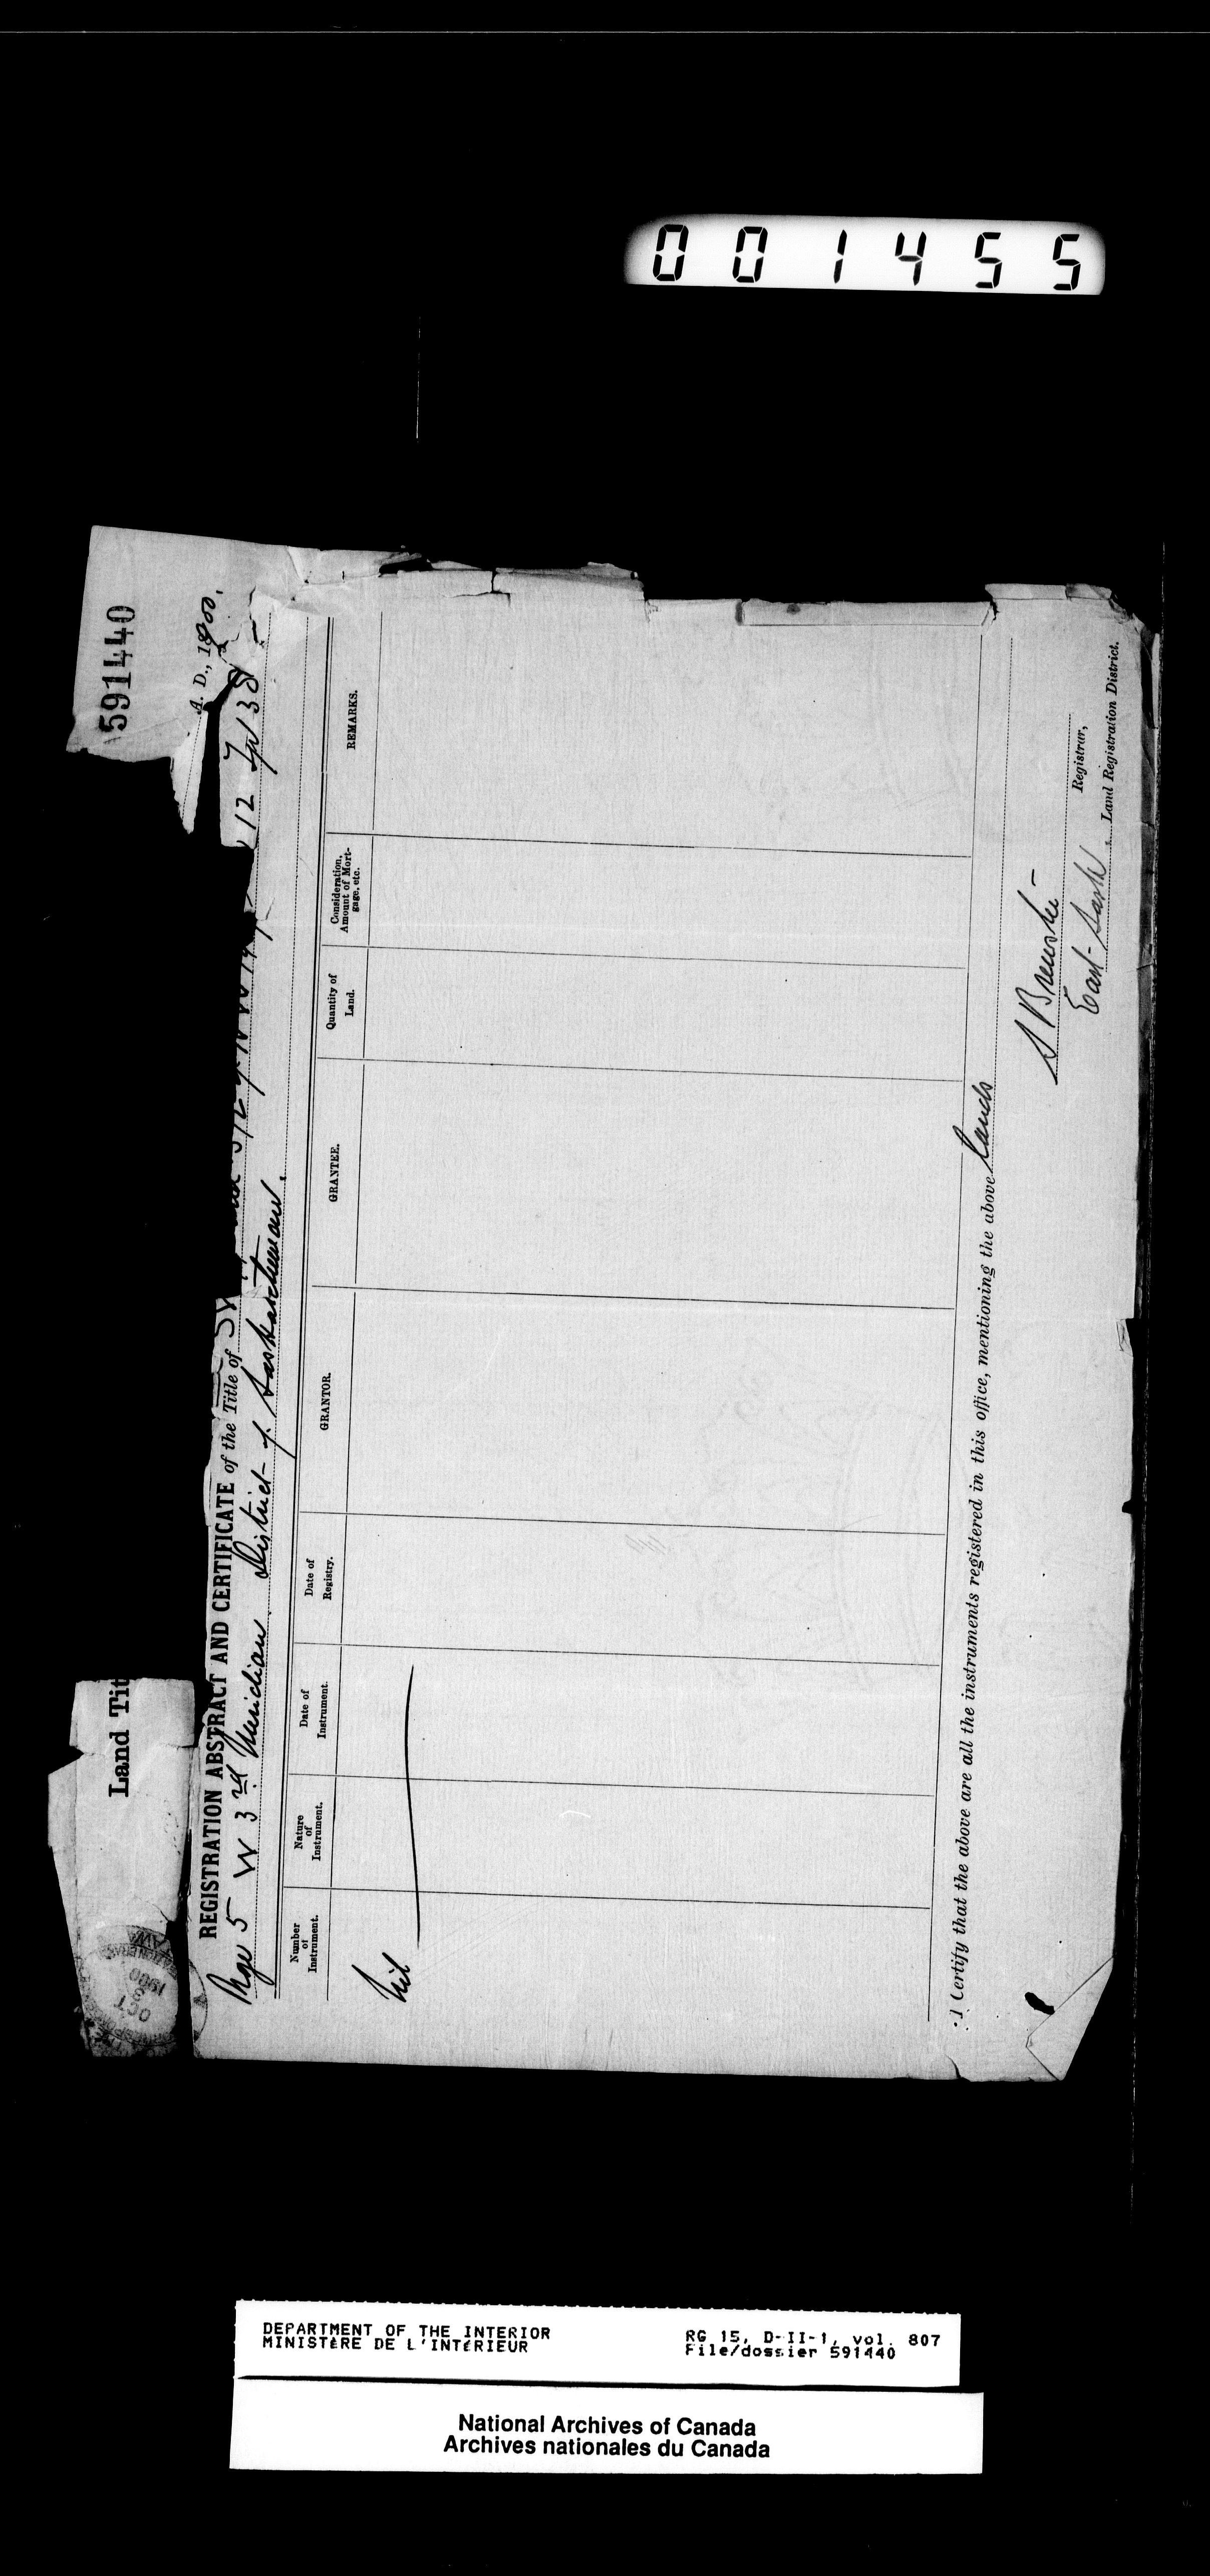 001455
591440
Land Tit
A. D., 1900.
OCT
1900
REGISTRATION ABSTRACT AND CERTIFICATE of the Title of
12 Tp 38
Rge 5 W 3rd Meridian District of Saskatchewan.
Number of Instrument.
Nature of Instrument.
Date of Instrument.
Date of Registry.
GRANTOR.
GRANTEE.
Quantity of Land.
Consideration, Amount of Mortgage, etc.
REMARKS.
Nil
I Certify that the above are all the instruments registered in this office, mentioning the above lands
S Brewster
Registrar,
East Sask. Land Registration District.
DEPARTMENT OF THE INTERIOR
MINISTÈRE DE L'INTÉRIEUR
RG 15, D-II-1, vol. 807
File/dossier 591440
National Archives of Canada
Archives nationales du Canada